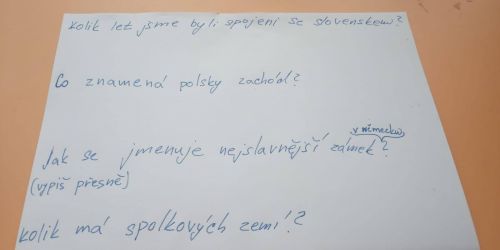 Kolik let jsme byli spojeni se slovenskem?
Co znamená polsky zachód?
v německu
Jak se jmenuje nejslavnější zámek?
(vypiš přesně)
Kolik má spolkových zemí?